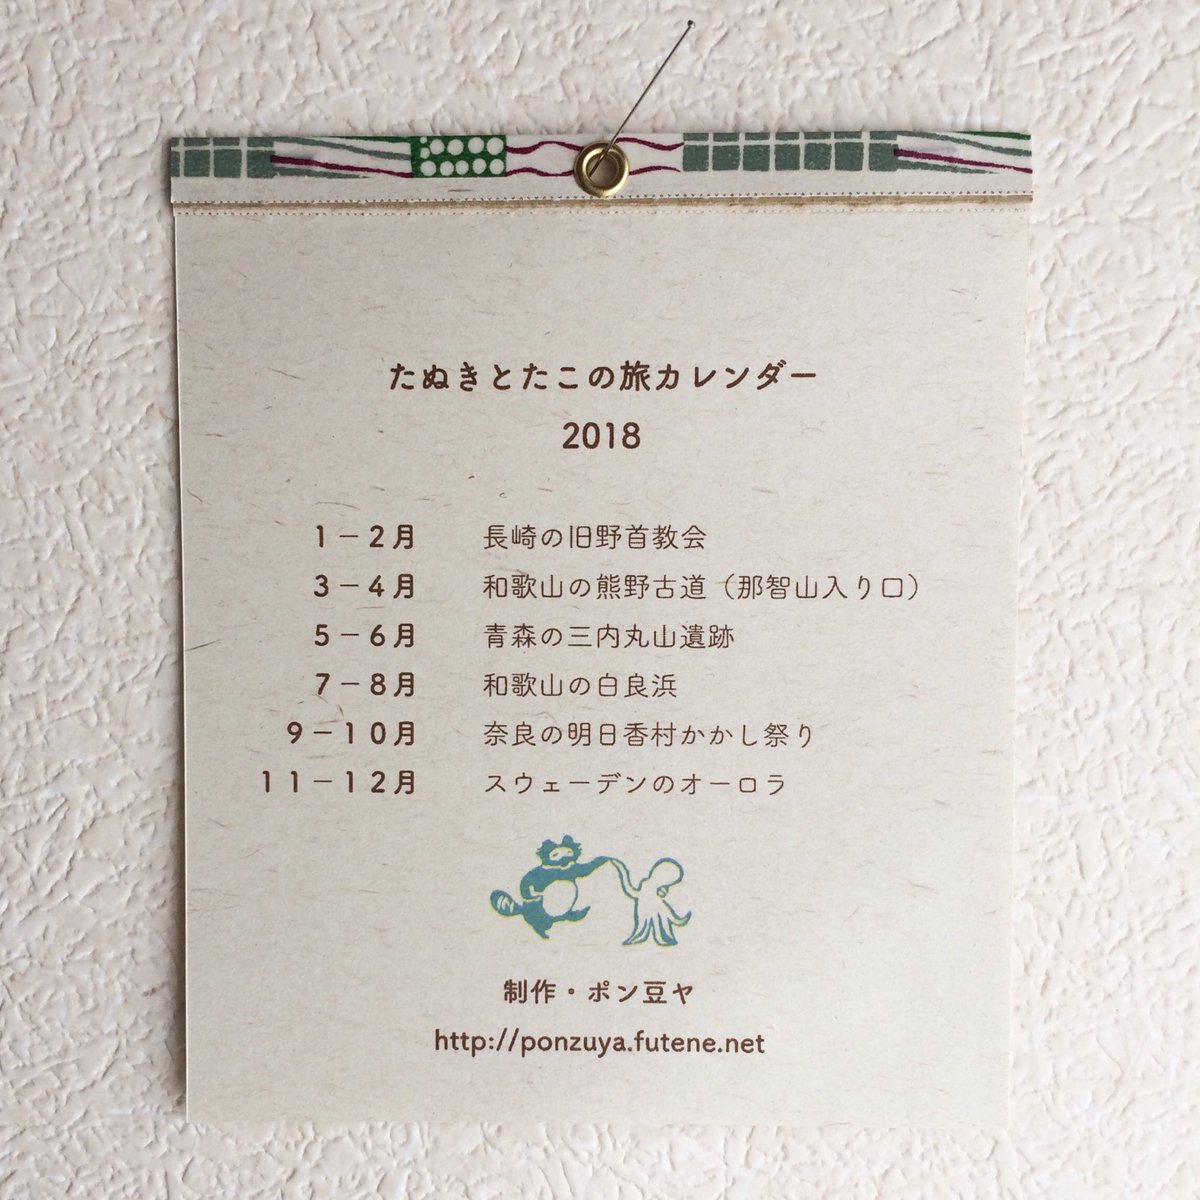 たぬきとたこの旅カレンダー
2018
1－2月 長崎の旧野首教会
3－4月 和歌山の熊野古道（那智山入り口）
5－6月 青森の三内丸山遺跡
7－8月 和歌山の白良浜
9－10月 奈良の明日香村かかし祭り
11－12月 スウェーデンのオーロラ
制作・ポン豆ヤ
http://ponzuya.futene.net